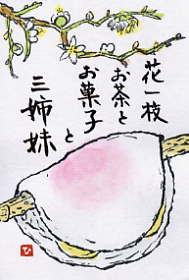 花一枝
お茶と
お菓子と
三姉妹
ひ